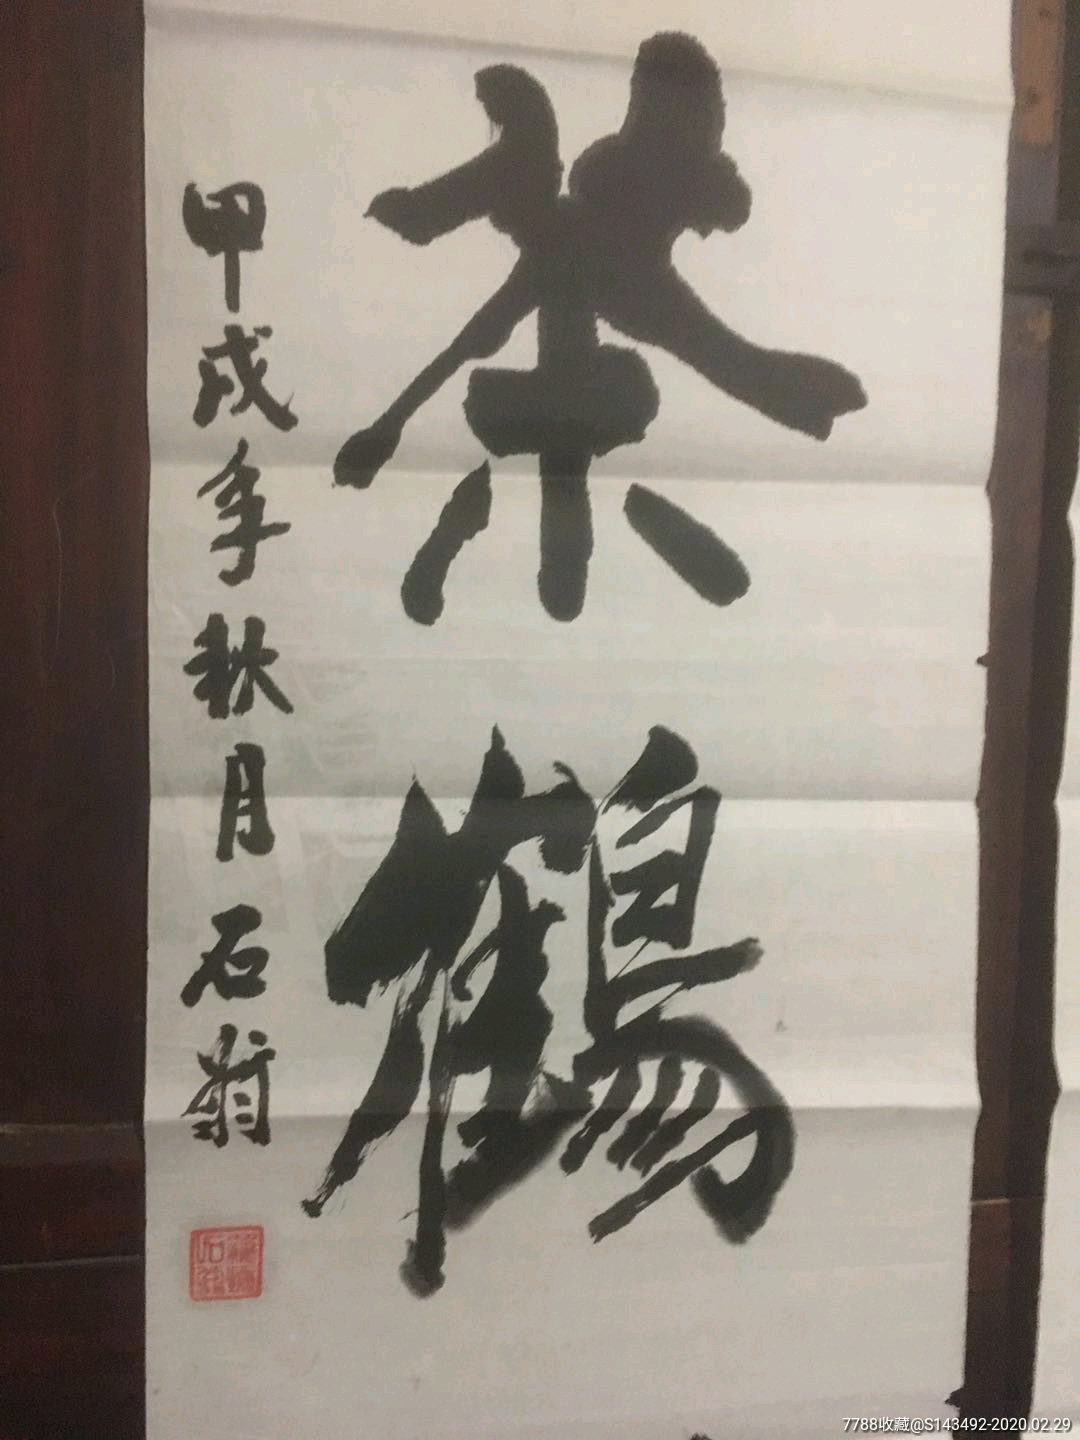 茶鶴
甲戌年秋月石翁
7788收藏@S143492-2020.02.29